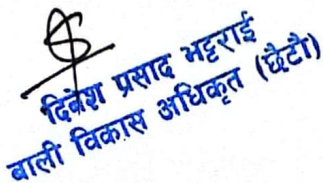 दिबेश प्रसाद भट्टराई
बाली विकास अधिकृत (छैटौ)